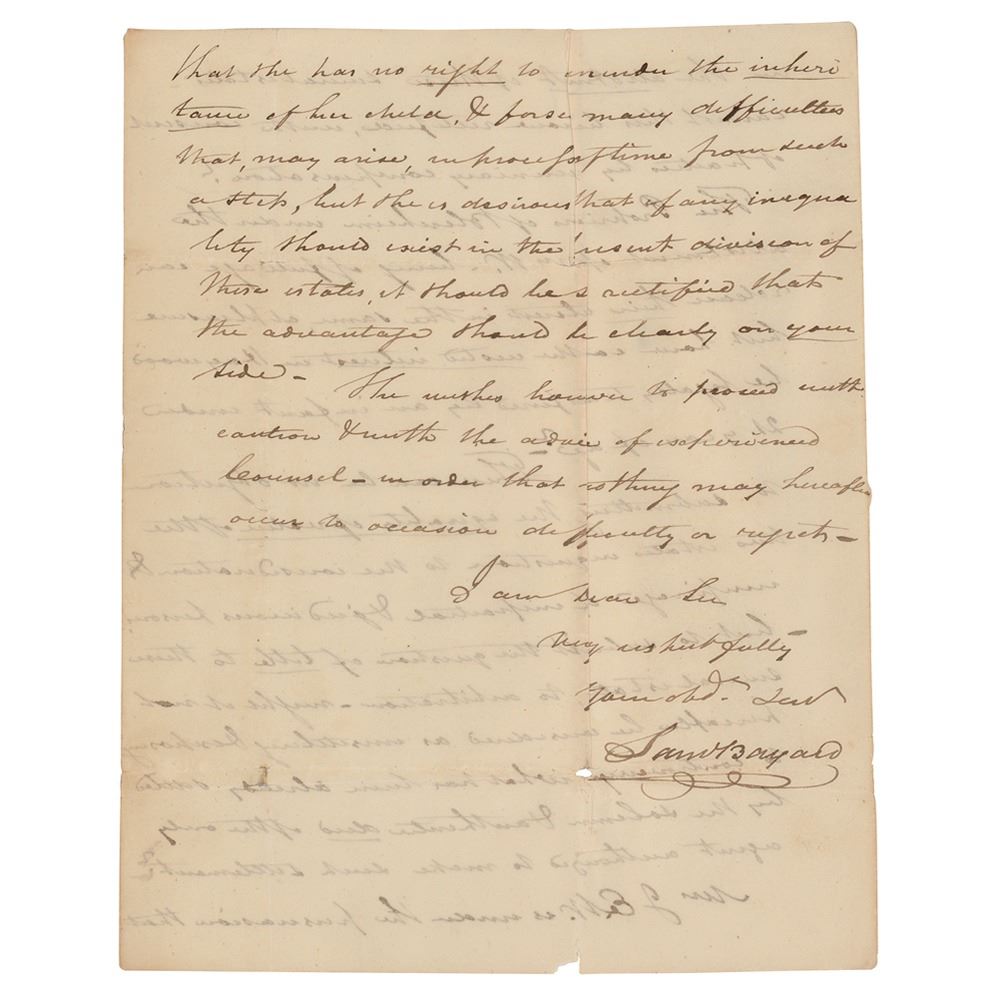 that she has no right to in under the inheri
tance of her child, & forse many difficulties
that, may arise, in process of time from such
a step, but she is desirous that if any inequa
lity should exist in the present division of
these estates, it should be so rectified that
the advantage should be clearly on your
side – She wishes however to proceed with
caution & with the advice of experienced
Counsel – in order that nothing may hereafter
occur to occasion difficulty or regret –
I am Dear Sir
very respectfully
Your obdt. Servt
Saml Bayard